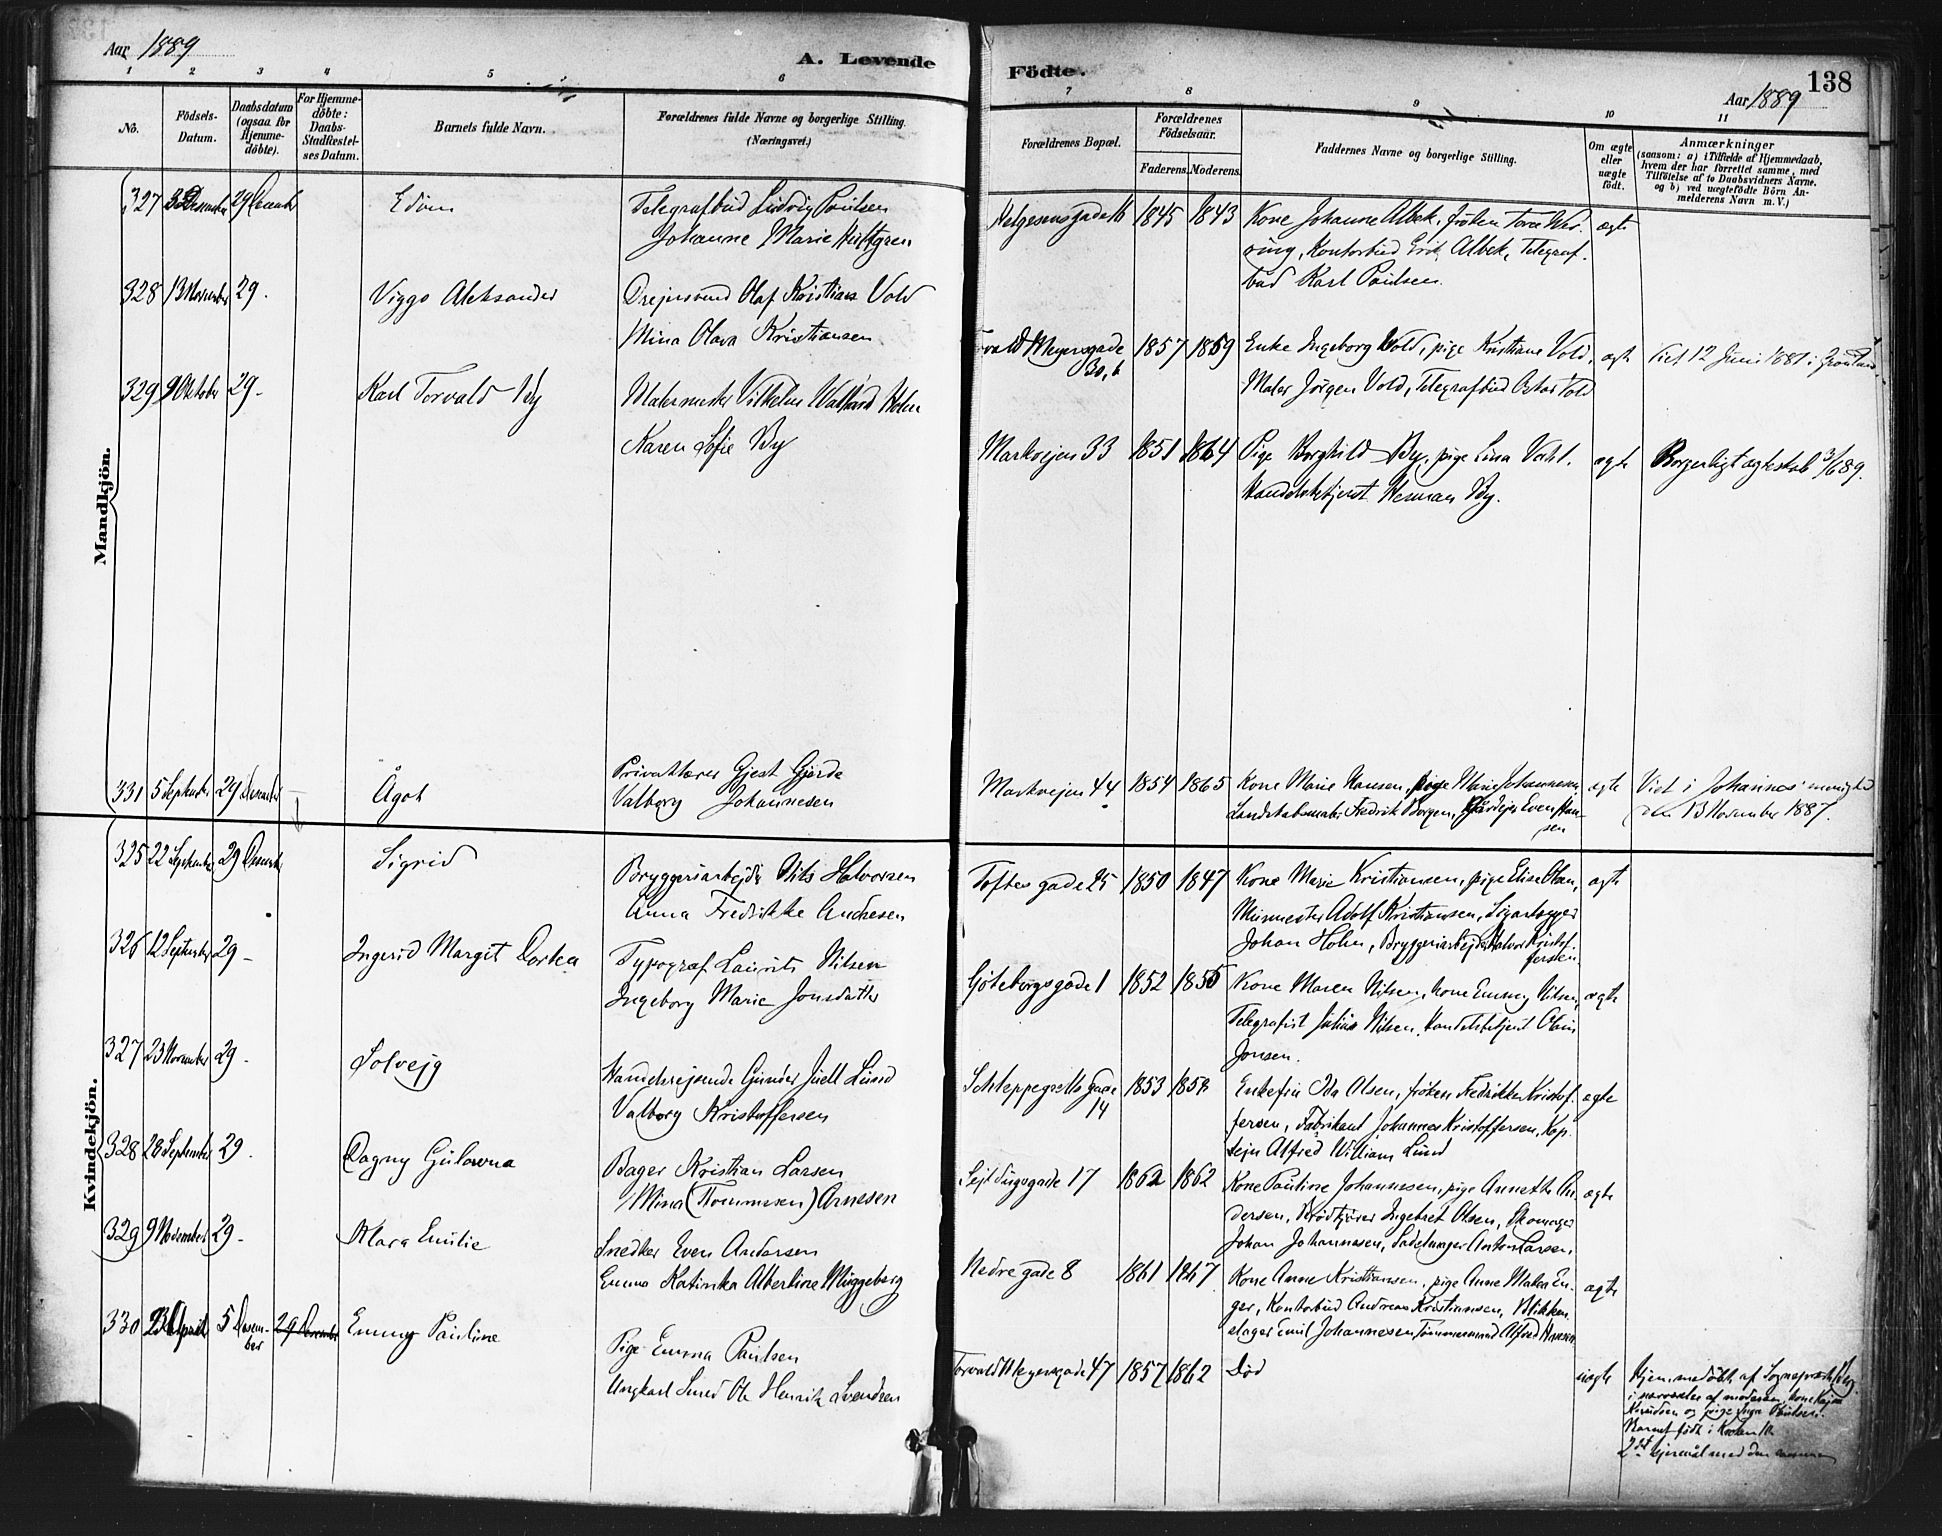 Aar 1889
A. Levende
Födte.
138
Aar 1889
1 2 3 4 5 6
7 8 9 10 11
No.
Födsels-
Datum.
Daabsdatum
(ogsaa for
Hjemme-
döbte).
For Hjemme-
döbte:
Daabs-
Stadfæstel-
ses Datum.
Barnets fulde Navn.
Forældrenes fulde Navne og borgerlige Stilling.
(Næringsvei.)
Forældrenes Bopæl.
Forældrenes
Födselsaar.
Faderens. Moderens.
Faddernes Navne og borgerlige Stilling.
Om ægte
eller
uægte
födt.
Anmærkninger
(saasom: a) i Tilfælde af Hjemmedaab,
hvem der har forrettet samme, med
Tilföielse af to Daabsvidners Navne.
og b) ved uægtefödte Börn An-
melderens Navn m. V.)
Mandkjön.
327 December 29
Telegrafbud Ludvig Paulsen
Johanne Marie Hultgren
Helgesensgade 16 1845 1843 Kone Johanne Albek, fröken
ægte
Kontorbud Erik Albek, Telegraf-
bud Karl Paulsen.
328 13 November 29.
Viggo Aleksander
Drejersvend Olaf Kristian Vold
Mina Olava Kristiansen
Meyersgade
30, b
1857 1859 Enke Ingeborg Vold, pige Kristiane Vold,
ægte
Viet 12 Juni 1881 i Grönland
Maler Jörgen Vold, Telegrafbud Oskar Vold
329 9 Oktober 29 -
Karl Torvald By
Malermester Vilhelm Holm
Karen Sofie By
Markvejen 33 1851 1864 Pige Borghild By, pige Lina
ægte
Borgerligt ægteskab 3/6 89.
Handelsbetjent Herman By.
331 5 September 29 December
Ågot
Privatlærer Gjest Gjerde
Valborg Johannesen
Markvejen 44 1854 1865 Kone Marie Hansen, pige Marie Johannesen,
ægte
Viet i Johannes' menighed
den 13 November 1887.
Landskabsmaler Fredrik Borgen, Even Han-
sen
Kvindekjön.
325 22 September 29 December
Sigrid
Bryggeriarbejder Nils Halvorsen
Anna Fredrikke Andresen
Toftesgade 25 1850 1847 Kone Marie Kristiansen, pige Elise Olsen,
ægte
Murmester Adolf Kristiansen,
Johan Holm, Bryggeriarbejder Halvor Kristof-
fersen.
326 12 September 29 -
Ingerid Margit Dortea
Typograf Laurits Nilsen
Ingeborg Marie Jonsdatter
Göteborgsgade 1 1852 1855 Kone Maren Nilsen, kone Emmy Nilsen,
ægte
Telegrafist Julius Nilsen, Handelsbetjent
Jonsen.
327 23 November 29 -
Solvejg
Handelsrejsende Gunder Juell Lund
Valborg Kristoffersen
Schleppegrells gade
14
1853 1858 Enkefru Ida Olsen, fröken Fredrikke Kristof-
ægte
fersen, Fabrikant Johannes Kristoffersen, Kap-
tejn Alfred William Lund
328 28 September 29.
Dagny Gulovna
Bager Kristian Larsen
Mina (Tommesen) Arnesen
Sejldugsgade 17 1862 1862 Kone Pauline Johannesen, pige Annette An-
ægte
dersen, Brödkjörer Ingebret Olsen, Skomager
Johan Johannesen, Sadelmager Anton Larsen.
329 9 November 29 -
Klara Emilie
Snedker Even Andersen
Emma Katinka Albertine Muggeberg
Nedre gade 8 1861 1867 Kone Anne Kristiansen, pige Anne Malea En-
ægte
ger, Kontorbud Andreas Kristiansen, Blikken-
slager Emil Johannesen, Tömmermand Alfred Hansen
330 23 April 5 Desem-
ber
29 December
Emmy Pauline
Pige Emma Paulsen
Ungkarl Smed Ole Henrik Svendsen
Torvald Meyersgade 47 1857 1862 Död
uægte
Hjemmedöbt af Sogneprest
i nærværelse af moderen, kone Kajsa
Knudsen og pige Inga Paulsen.
Barnet födt i
2det lejermål med den samme